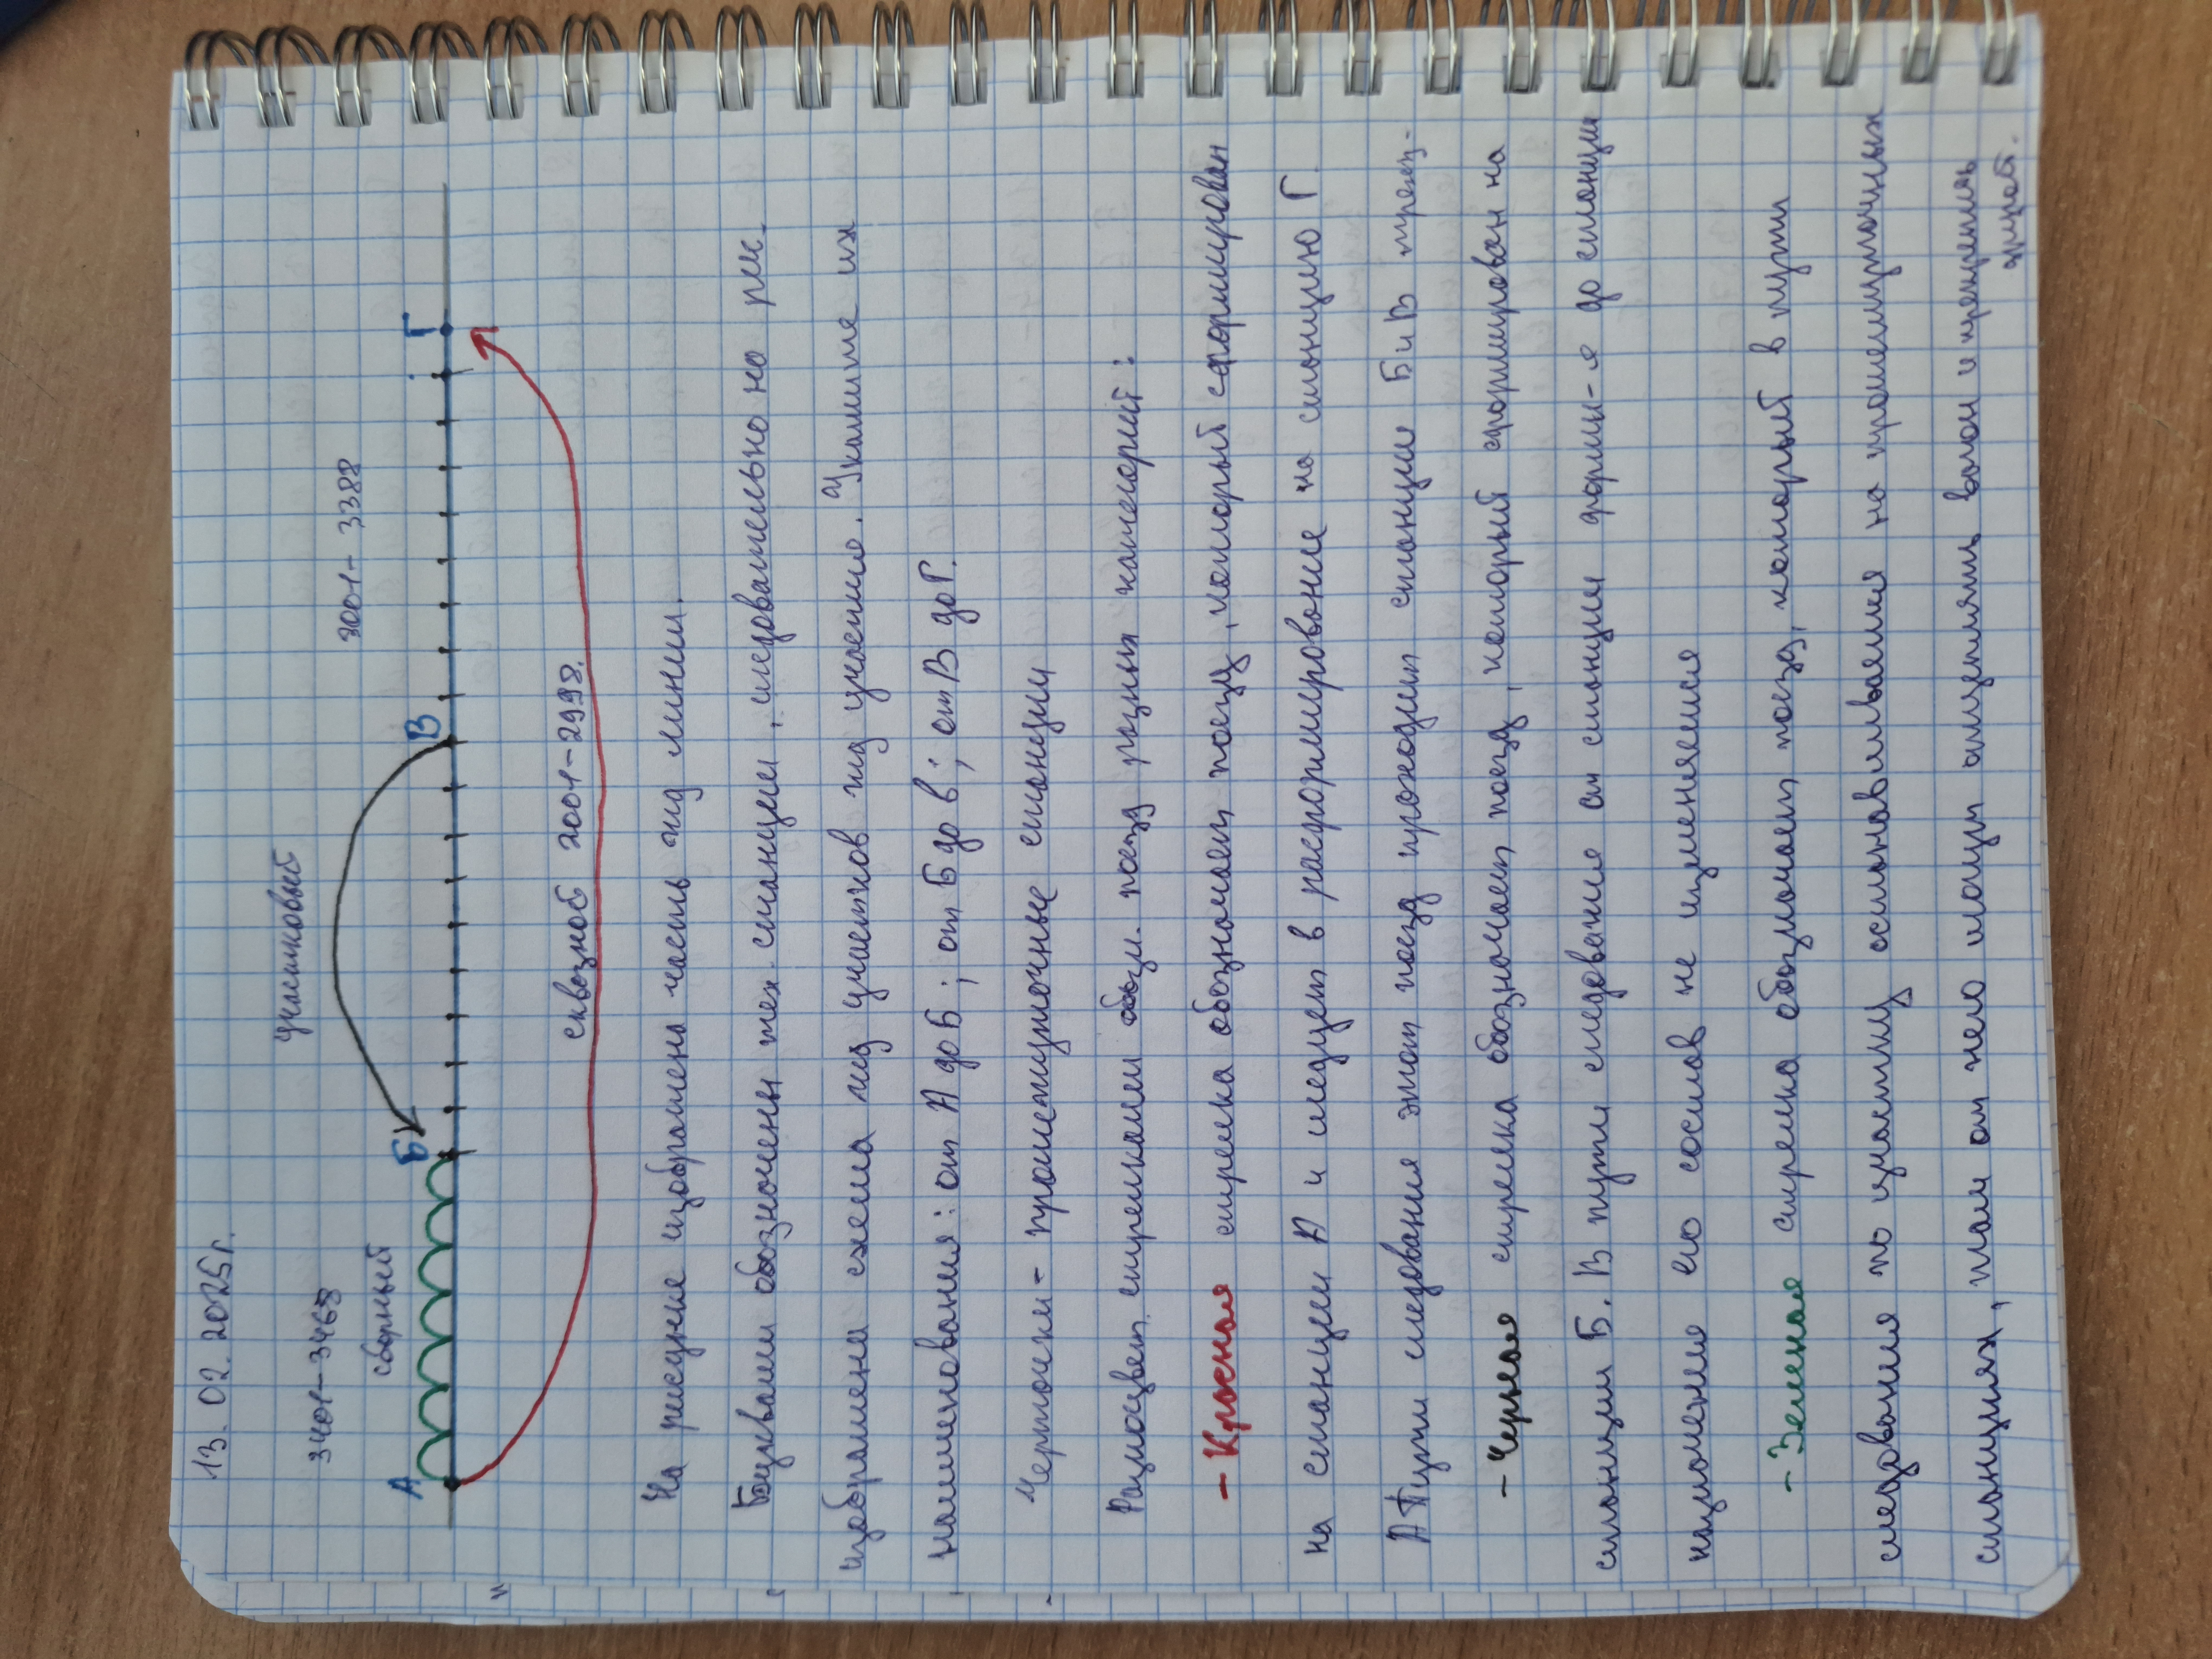 13. 02. 2025г.
участковый
3401-3468
3001-3388
сборный
А
Б
В
Г
сквозной 2001-2998.
На рисунке изображена часть жд линии.
Буквами обозначены тех. станции, следовательно на рис.
изображена схема жд участков жд участие. Укажите их
наименования: от А до Б; от Б до в; от В до Г.
Черточки - промежуточные станции
Разноцвет. стрелками обозн. поезд разных категорий:
- Красная стрелка обозначает поезд, который сформирован
на станции А и следует в расформирование на станцию Г.
А Пути следования этот поезд проходит станции Б и В транз-
- Черная стрелка обозначает поезд, который сформирован на
станции Б. В пути следования от станции форми-я до станции
назначение его состав не изменяется
- Зеленая стрелка обозначает поезд, который в пути
следования по участку останавливается на промежуточных
станциях, там от него могут отцеплять вагон и прицеплять